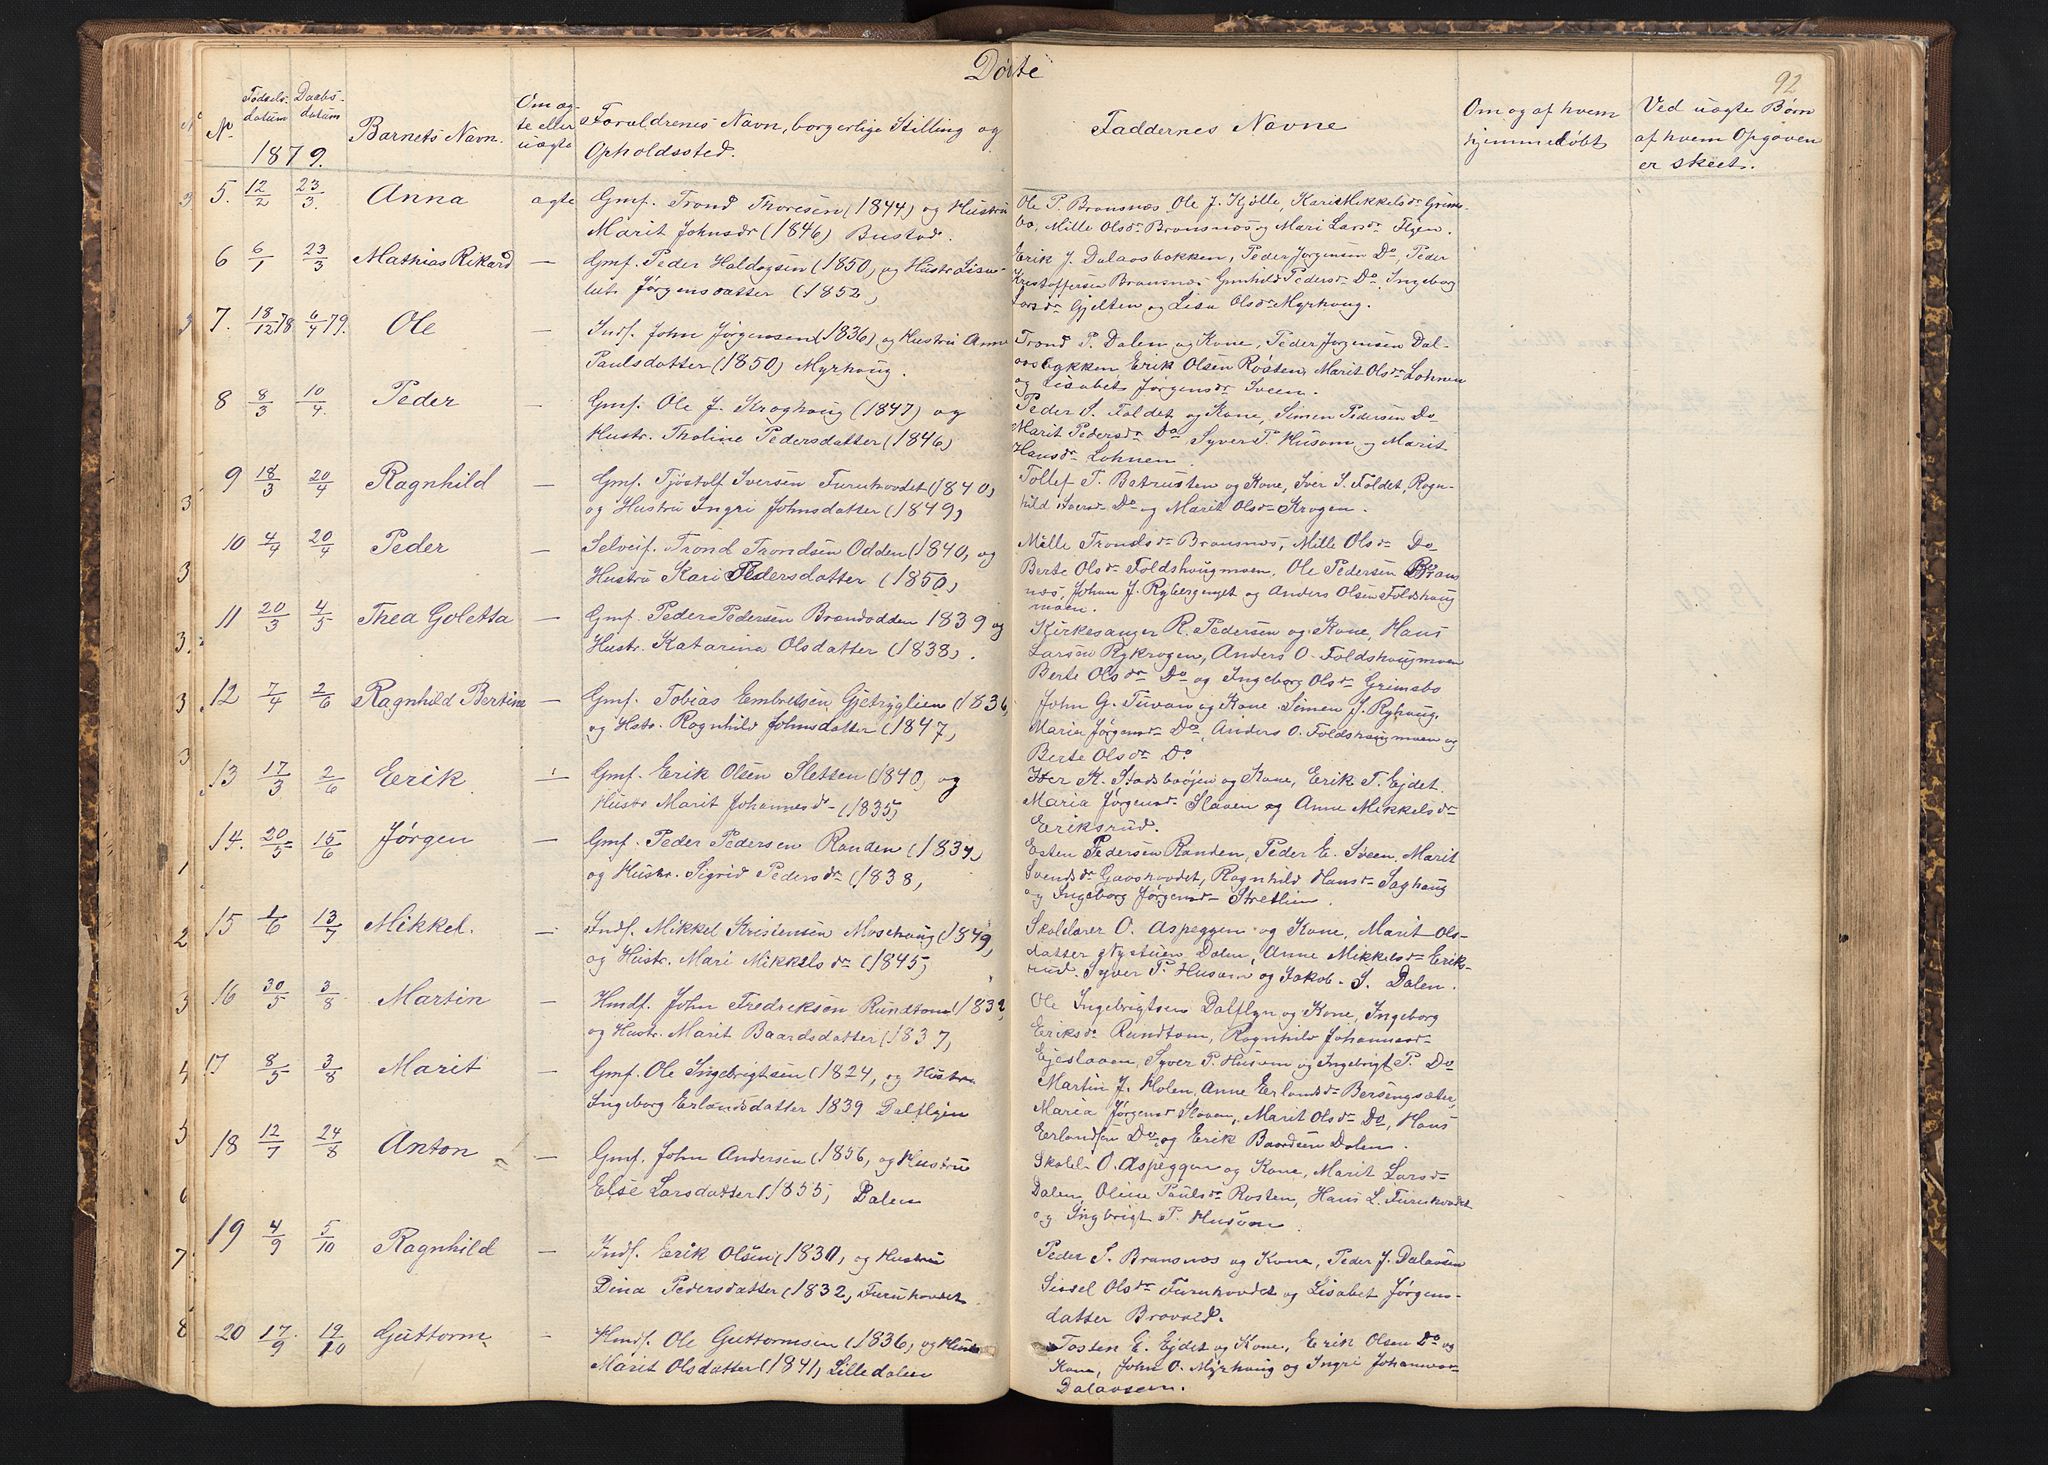 Døbte
92
No
Fødsels-
datum
Daabs-
datum
1879.
Barnets Navn.
Om æg-
te eller
uægte
Forældrenes Navn, borgerlige Stilling og
Opholdssted.
Faddernes Navne
Om og af hvem
hjemmedøbt
Ved uægte Børn
af hvem Opgaven
er skeet.
5. 12/2 23/3. Anna ægte Gmf. Trond Thoresen (1844) og Hustru
Marit Johnsdr (1846) Bustad.
Ole P. Brænsnæs, Ole J. Kjølle, Kari Mikkelsdr Grims-
bo, Mille Olsdr Brænsnæs og Mari Larsdr Flyen.
6 6/1 23/3 Mathias Rikard — Gmf. Peder Haldogsen (1850, og Hustru Lisa-
bet Jørgensdatter (1852,
Erik J. Dalaasbakken, Peder Jørgensen Do, Peder
Kristoffersen Brænsnæs Gunhild Pedersdr Do, Ingeborg
Larsdr Gjelten og Lisa Olsdr Myrhaug.
7. 18/12 78 6/4 79. Ole — Indf. John Jørgensen (1836) og Hustru Anne
Paulsdatter (1850) Myrhaug.
Trond P. Dalen og Kone, Peder Jørgensen Dal-
aasbakken, Erik Olsen Røsten, Marit Olsdr Lohnen
og Lisabet Jørgensdr Sveen.
8 8/3 10/4. Peder — Gmf. Ole J. Kroghaug (1847) og
Hustr. Tholine Pedersdatter (1846)
Peder S. Foldet og Kone, Simen Pedersen Do
Marit Pedersdr Do, Syver P. Husom og Marit
Hansdr Lohnen.
9 18/3 20/4 Ragnhild — Gmf. Tjøstolf Iversen Furuhovdet (1840,
og Hustru Ingri Johnsdatter (1849,
Tollef T. Betrusten og Kone, Iver S. Foldet, Ragn-
hild Iversdr Do og Marit Olsdr Krogen.
10 4/4 20/4 Peder — Selveif. Trond Trondsen Odden (1840, og
Hustru Kari Pedersdatter (1850,
Mille Trondsdr Brænsnæs, Mille Olsdr Do
Berte Olsdr Foldshaugmoen, Ole Pedersen Bræns
næs, Johan J. Rybergenget og Anders Olsen Foldshaug
moen.
11 20/3 4/5 Thea Goletta — Gmf. Peder Pedersen Brændodden 1839 og
Hustr. Katarina Olsdatter (1838,.
Kirkesanger R. Pedersen og Kone, Hans
Larsen Rykrogen, Anders O. Foldshaugmoen
Berte Olsdr Do og Ingeborg Olsdr Grimsbo
12 7/4 2/6 Ragnhild Bertine — Gmf. Tobias Embretsen Gjetryglien (1836,
og Hstr. Ragnhild Johnsdatter (1847,
John G. Tuvan og Kone Simen J. Ryhaug.
Maria Jørgensdr Do, Anders O. Foldshaugmoen og
Berte Olsdr Do
13 17/3 2/6 Eerik — Gmf. Erik Olsen Sletten (1840, og
Hustr Marit Johannesd- (1835,
Iver K. Stadsbuøjen og Kone, Erik T. Ejdet.
Maria Jørgensdr Slaaen og Anne Mikkelsdr
Eeriksrud.
14. 20/5 15/6 Jørgen — Gmf. Peder Pedersen Randen (1834,
og Hustr. Sigrid Pedersdr (1838,
Esten Pedersen Randen, Peder E. Sveen, Marit
Svendsdr Gaashovdet, Ragnhild Hansdr Saghaug
og Ingeborg Jørgensdr Stretlien.
15 1/6 13/7 Mikkel. — Indf. Mikkel Kristensen Moschaug (1849,
og Hustr. Mari Mikkelsdr (1845,
Skolelærer O. Aspeggen og Kone, Marit Ols-
datter Nystuen Dalen, Anne Mikkelsdr Eeriks-
rud. Syver P. Husom og Jakob S. Dalen.
16 30/5 3/8 Martin — Hmdf. John Fredriksen Rundtom (1832,
og Hustr. Marit Baardsdatter (1837,
Ole Ingebrigtsen Dalflyn og Kone, Ingeborg
Eriksdr Rundtom, Ragnhild Johannesdr
Ejeslaaen, Syver P. Husom og Ingebrigt P. Do
17 8/5 3/8 Marit — Gmf. Ole Ingebrigtsen (1824, og Hustru
Ingeborg Erlandsdatter 1839 Dalflyen
Martin J. Molen, Anne Erlandsdr Bersengsæter,
Maria Jørgensdr Slaaen, Marit Olsdr Do, Hans
Erlandsen Do og Erik Baardsen Dalen.
18 12/7 24/8 Anton — Gmf. John Andersen (1856, og Hustru
Else Larsdatter (1855, Dalen
Skolel. O. Aspeggen og Kone, Marit Larsdr
Dalen, Oline Paulsdr Rosten, Hans L. Furuhovdet
og Ingbrigt P. Husom.
19 4/9 5/10 Ragnhild — Indf. Erik Olsen (1830, og Hustru
Dina Pedersdatter (1832, Furuhovdet
Peder S. Brænsnæs og Kone, Peder J. Dalaasen
Sissel Olsdr Furuhovdet og Lisabet Jørgens-
datter Bravold.
20 17/9 19/10 Guttorm — Hmdf. Ole Guttormsen (1836, og Hustr
Marit Olsdatter (1841, Lilledalen
Tosten E. Ejdet og Kone, Erik Olsen Do og
Kone, John O. Myrhaug og Ingri Johannesdr
Dalaasen.